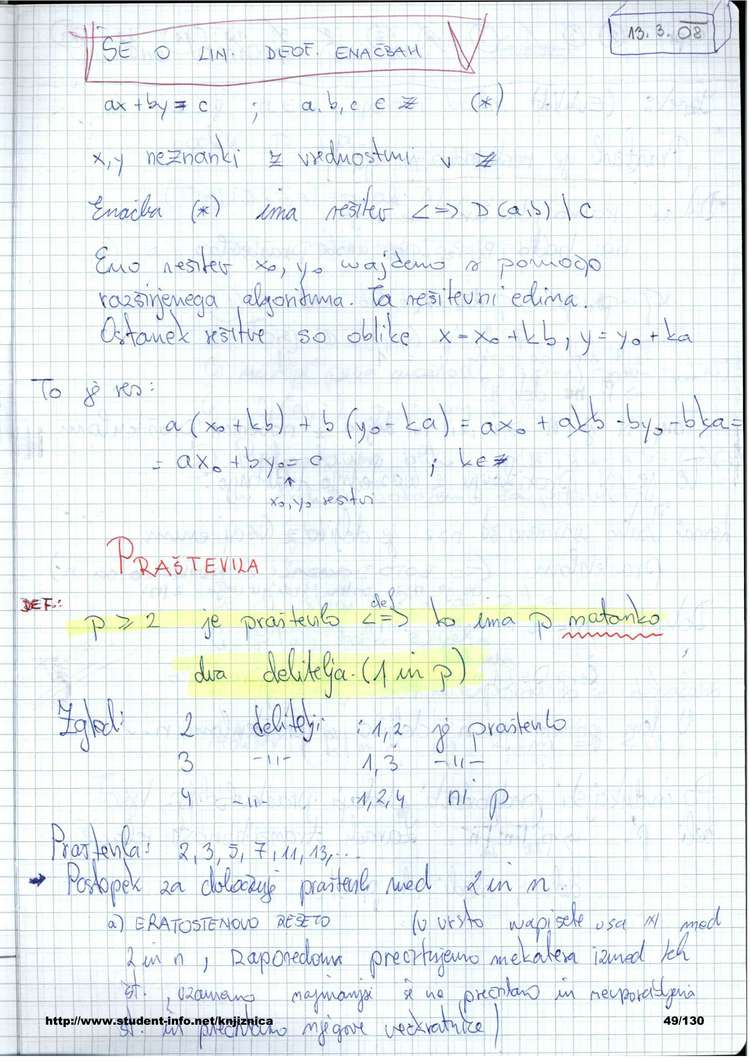 ŠE O LIN. DEOF. ENAČBAH
13. 3. 08
ax + by = c ; a, b, c ∈ Z (*)
x, y neznanki z vrednostmi v Z
Enačba (*) ima rešitev <=> D(a,b) | c
Eno rešitev x₀, y₀ najdemo s pomočjo
razširjenega algoritma. Ta rešitev ni edina.
Ostanek rešitve so oblike x = x₀ + kb, y = y₀ + ka
To je res:
a (x₀ + kb) + b (y₀ - ka) = ax₀ + akb - by₀ - bka =
= ax₀ + by₀ = c ; k ∈ Z
x₀, y₀ rešitvi
PRAŠTEVILA
DEF.:
p ≥ 2 je praštevilo <=> def to ima p natanko
dva delitelja. (1 in p)
Zgled: 2 delitelji : 1, 2 je praštevilo
3 -11- 1, 3 -11-
4 -11- 1, 2, 4 ni p
Praštevila: 2, 3, 5, 7, 11, 13, ...
→ Postopek za določanje praštevil med 2 in n.
a) ERATOSTENOVO REŠETO (v vrsto napišete vsa št med
2 in n, zaporedoma prečrtujemo nekatera izmed teh
št., vzamemo najmanjše še ne prečrtano in neuporabljeno
št. in prečrtamo njegove večkratnike)
http://www.student-info.net/knjiznica
49/130